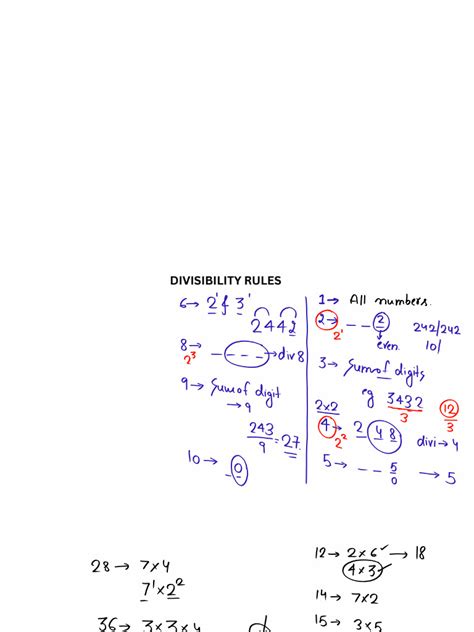 DIVISIBILITY RULES
6 → 2' & 3'
2442
8 → - - - - → div 8
2³
9 → Sum of digit
→ 9
243/9 = 27
10 → - 0
1 → All numbers.
2 → - - 2 242/242
2' even 10/
3 → Sum of digits
eg 3432/3 12/3
2x2
4 → 2 48 divi → 4
2²
5 → - - 5/0 → 5
28 → 7x4
7' x 2²
36 → 3x3x4
12 → 2x6 ✓ → 18
4x3 ✓
14 → 7x2
15 → 3x5